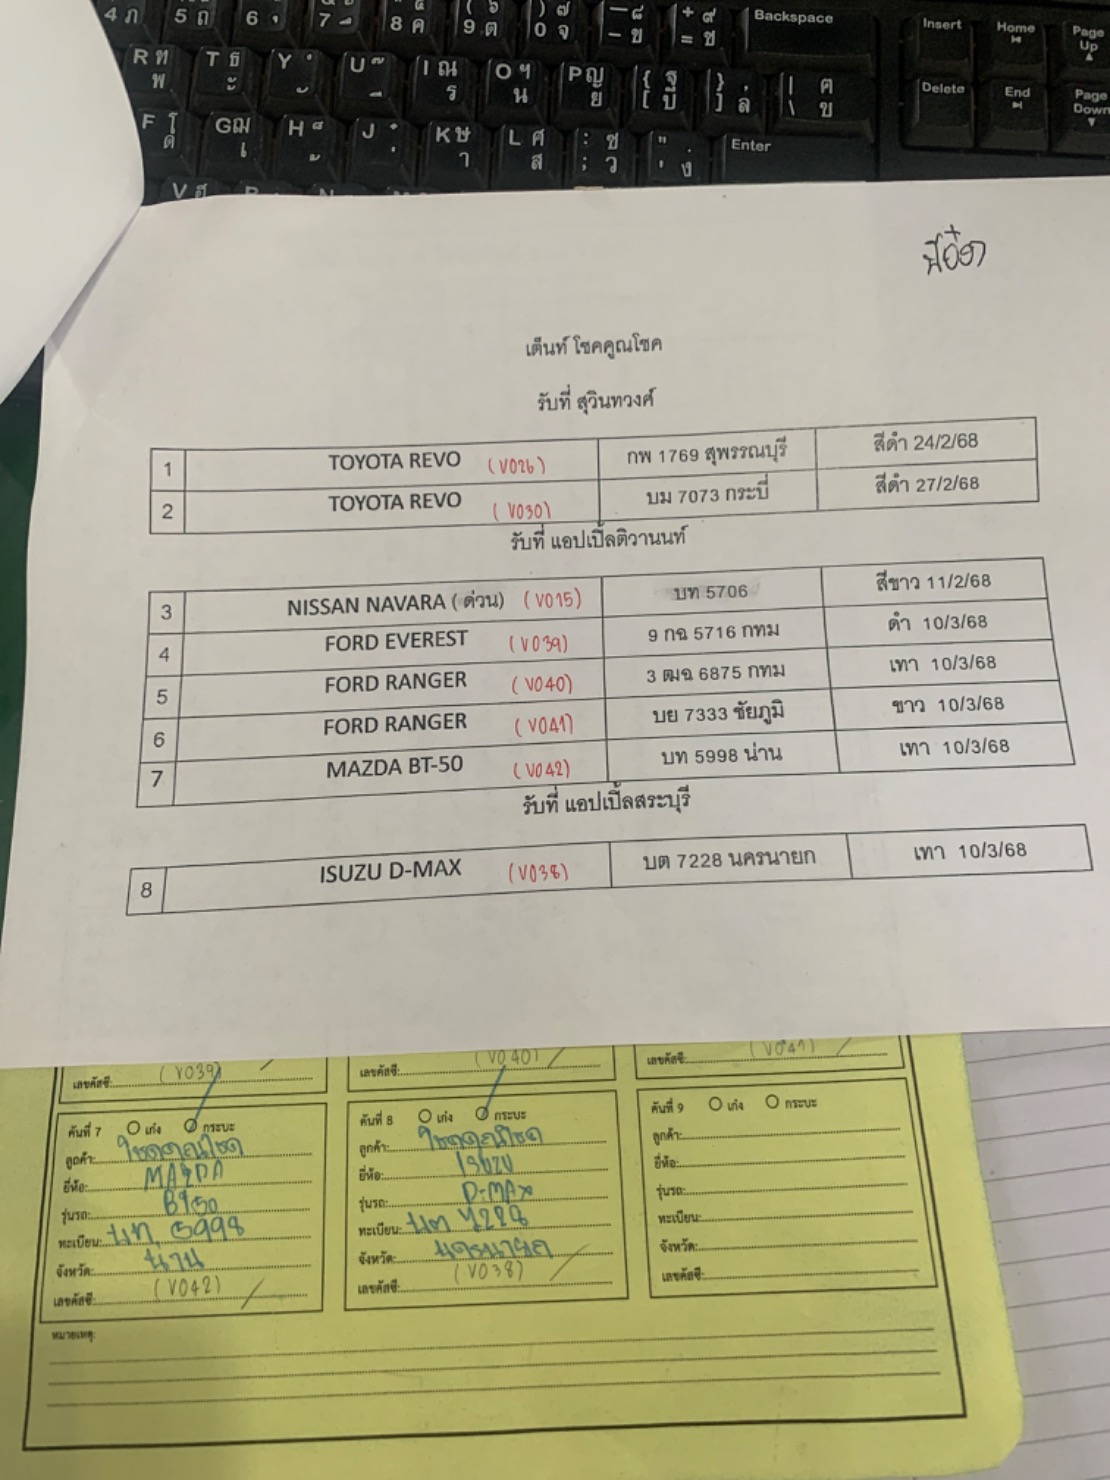 Backspace
Insert
Home
Page Up
Delete
End
Page Down
Enter
พี่อ๊อด
เต็นท์ โชคคูณโชค
รับที่ สุวินทวงศ์
1 TOYOTA REVO (V026) กพ 1769 สุพรรณบุรี สีดำ 24/2/68
2 TOYOTA REVO (V030) บม 7073 กระบี่ สีดำ 27/2/68
รับที่ แอปเปิ้ลติวานนท์
3 NISSAN NAVARA ( ด่วน) (V015) บท 5706 สีขาว 11/2/68
4 FORD EVEREST (V039) 9 กฉ 5716 กทม ดำ 10/3/68
5 FORD RANGER (V040) 3 ฒฉ 6875 กทม เทา 10/3/68
6 FORD RANGER (V041) บย 7333 ชัยภูมิ ขาว 10/3/68
7 MAZDA BT-50 (V042) บท 5998 น่าน เทา 10/3/68
รับที่ แอปเปิ้ลสระบุรี
8 ISUZU D-MAX (V038) บต 7228 นครนายก เทา 10/3/68
เลขคัสซี: (V039) เลขคัสซี: (V040) เลขคัสซี: (V041)
คันที่ 7 เก๋ง กระบะ
ลูกค้า: โชคคูณโชค
ยี่ห้อ: MAZDA
รุ่นรถ: BT50
ทะเบียน: บท 5998
จังหวัด: น่าน
เลขคัสซี: (V042)
คันที่ 8 เก๋ง กระบะ
ลูกค้า: โชคคูณโชค
ยี่ห้อ: ISUZU
รุ่นรถ: D-MAX
ทะเบียน: บต 7228
จังหวัด: นครนายก
เลขคัสซี: (V038)
คันที่ 9 เก๋ง กระบะ
ลูกค้า:
ยี่ห้อ:
รุ่นรถ:
ทะเบียน:
จังหวัด:
เลขคัสซี:
หมายเหตุ: